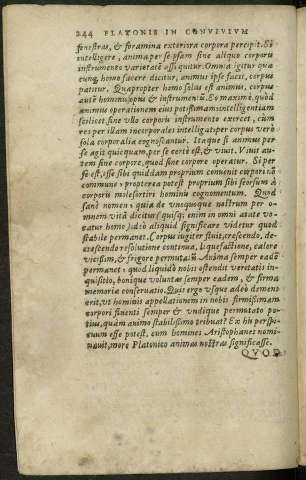 244 PLATONIS IN CONVIVIVM
fenestras, & foramina exteriora corpora percipit. Et
intelligere, anima per se ipsam sine aliquo corporis
instrumento varietatē assequitur. Omnia igitur quæ-
cunq; homo facere dicitur, animus ipse facit, corpus
patitur. Quapropter homo solus est animus, corpus
autē hominis opus & instrumentū. Eo maximè, quòd
animus operationem suam potissimam intelligentiam
scilicet, sine vllo corporis instrumento exercet, cùm
res per illam incorporales intelligat: per corpus verò
sola corporalia cognoscantur. Itaque si animus per
se agit quicquam, per se certè est, & viuit. Viuit au-
tem sine corpore, quod sine corpore operatur. Si per
se est, esse sibi quoddam proprium conuenit corpori nō
commune: propterea potest proprium sibi seorsum à
corporis mole sortiri hominis cognomentum. Quod
sanè nomen, quia de vnoquoque nostrûm per o-
mnem vitā dicitur (quisq; enim in omni ætate vo-
catur homo) stabile aliquid significare videtur quod
stabile permanet. Corpus iugiter fluit, crescendo, de-
crescendo resolutione continua, liquefactione, calore
vicissim, & frigore permutatū. Anima semper eadē
permanet: quod liquidò nobis ostendit veritatis in-
quisitio, bonique voluntas semper eadem, & firma
memoriæ conseruatio. Quis ergo vsque adeò demens
erit, vt hominis appellationem in nobis firmissimam
corpori fluenti semper & vndique permutato po-
tius, quàm animo stabilissimo tribuat? Ex his perspi-
cuum esse potest, cum homines Aristophanes nomi-
nauit, more Platonico animas nostras significasse.
QVOD